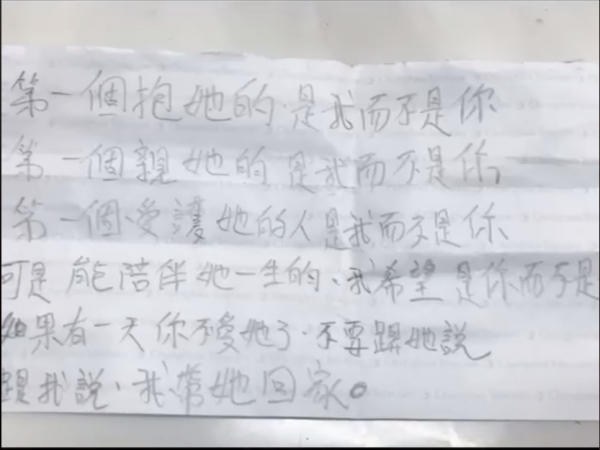 第一個抱她的.是我而不是你
第一個親她的是我而不是你
第一個愛護她的人是我而不是你
可是能陪伴她一生的、我希望是你而不是
如果有一天你不愛她了.不要跟她說
跟我說、我帶她回家。